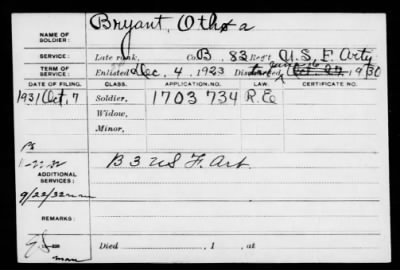 NAME OF SOLDIER: Bryant, Othoa
SERVICE: Late rank, Co. B, 83 Reg't U.S. F. Arty
TERM OF SERVICE: Enlisted Dec. 4, 1923 Discharged Oct. 1930
DATE OF FILING. CLASS. APPLICATION NO. LAW. CERTIFICATE NO.
1931 Oct. 7 Soldier, 1703 734 R.E.
Widow,
Minor,
ADDITIONAL SERVICES: B 3 US F. Art.
9/22/32
REMARKS:
Died , 1 , at